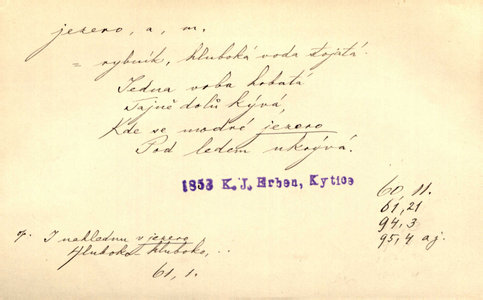 jezero, a, n.
= rybník, hluboká voda stojatá.
Jedna vrba hrbatá
Tajně dolů kývá,
Kde se modré jezero
Pod ledem ukrývá.
1853 K. J. Erben, Kytice
60, 11.
61, 21
94, 3
95, 4 aj.
I nahlednu v jezero
Hluboko hluboko, . .
61, 1.